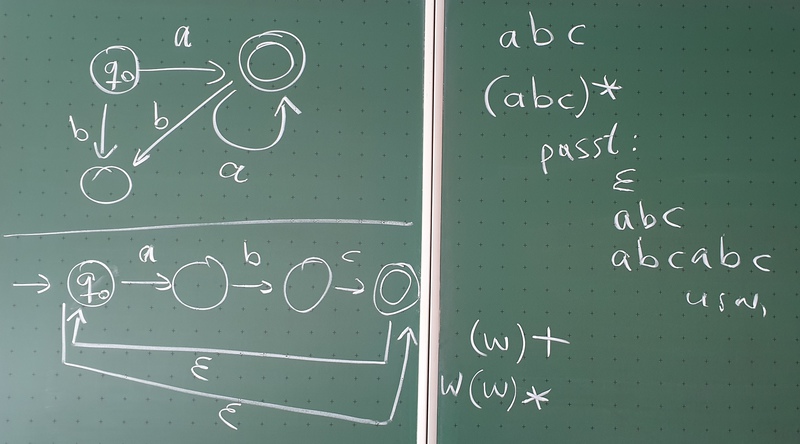 a
q₀
b
b
a
a
b
c
q₀
ε
ε
abc
(abc)*
passt:
ε
abc
abcabc
usw.
(w)+
w(w)*